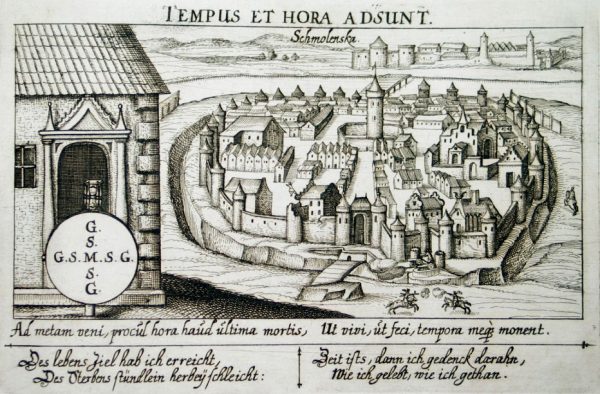 TEMPUS ET HORA ADSUNT.
Schmolenska
G.
S.
G.S.M.S.G.
S.
G.
Ad metam veni, procŭl hora haŭd ŭltima mortis, Ut vivi, ŭt feci, tempora meqꝫ monent.
Des lebens Ziel hab ich erreicht,
Des Sterbens stündlein herbeÿ schleicht:
Zeit ists, dann ich gedenck darahn,
Wie ich gelebt, wie ich gethan.